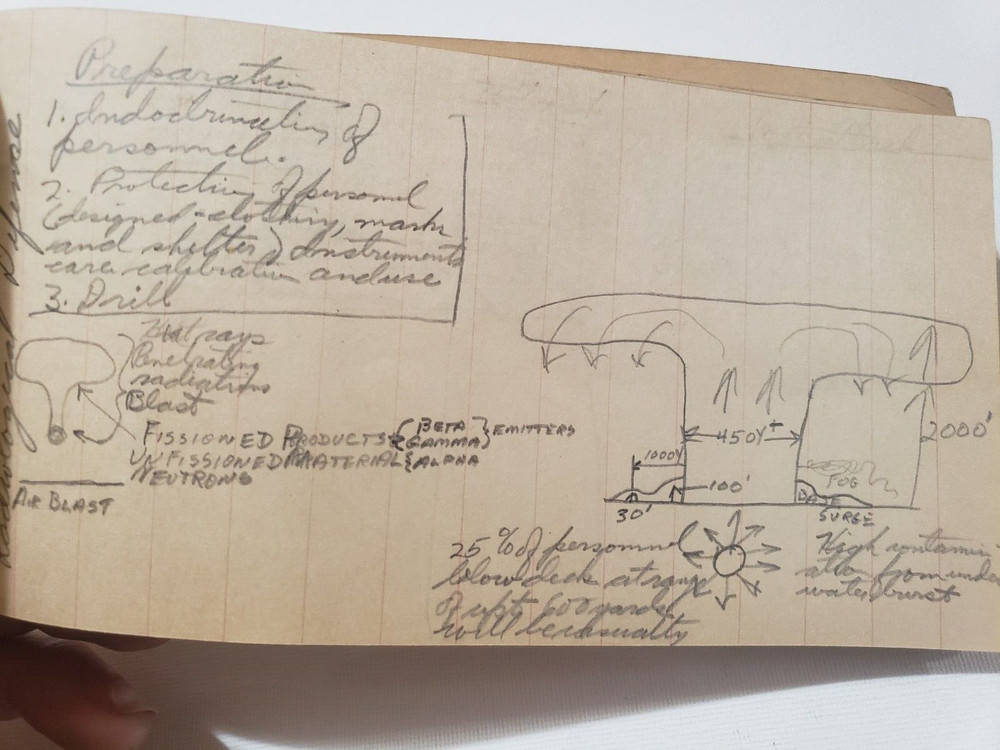 Preparation
1. Indoctrination of
personnel.
2. Protection of personnel
(designed-clothing, masks
and shelter) Instruments
care calibration and use
3. Drill
Defense
Heat rays
Penetrating
radiations
Blast
FISSIONED PRODUCTS { BETA } EMITTERS
GAMMA
UNFISSIONED MATERIAL { ALPHA
NEUTRONS
AIR BLAST
450Y±
2000'
1000Y
100'
30'
FOG
BASE
SURGE
25% of personnel
below deck at range
of upto 600 yards
will be casualty
High contamin
ation from under
water burst